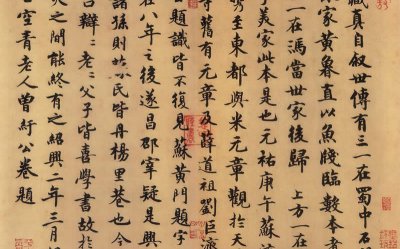 藏真自叙世傳有三一在蜀中石
休家黃魯直以魚牋臨數本者
一在馮當世家後歸上方一在
子美家此本是也元祐庚午蘇液
攜至東都與米元章觀於天
寺舊有元章及薛道祖劉巨濟
公題識皆不復見蘇黃門題字
在八年之後遂昌邵宰疑是興
諸孫則蘇氏皆丹楊里巷也今
吕辯老辯老父子皆喜學書故於
火之間能終有之紹興二年三月
空青老人曾紆公卷題